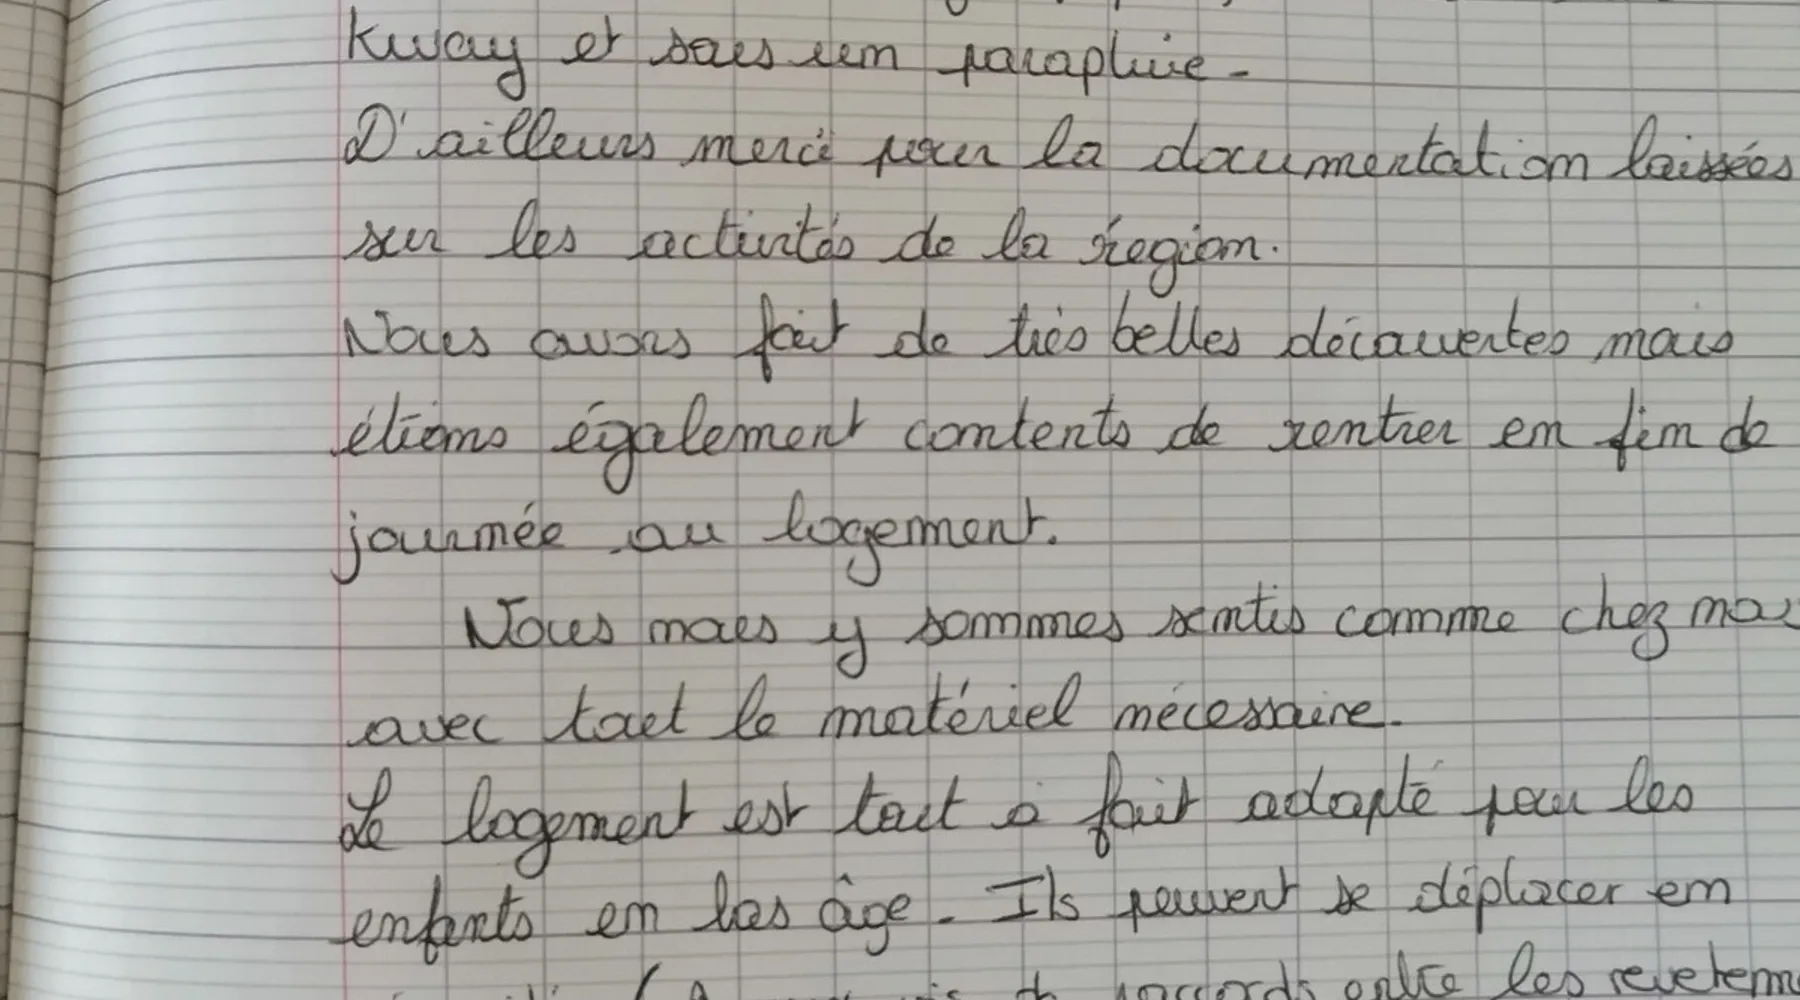 Kway et sous un parapluie.
D'ailleurs merci pour la documentation laissées
sur les activités de la région.
Nous avons fait de très belles découvertes mais
étions également contents de rentrer en fin de
journée au logement.
Nous nous y sommes sentis comme chez nous
avec tout le matériel nécessaire.
Le logement est tout à fait adapté pour les
enfants en bas âge. Ils peuvent se déplacer en
raccords entre les revêteme